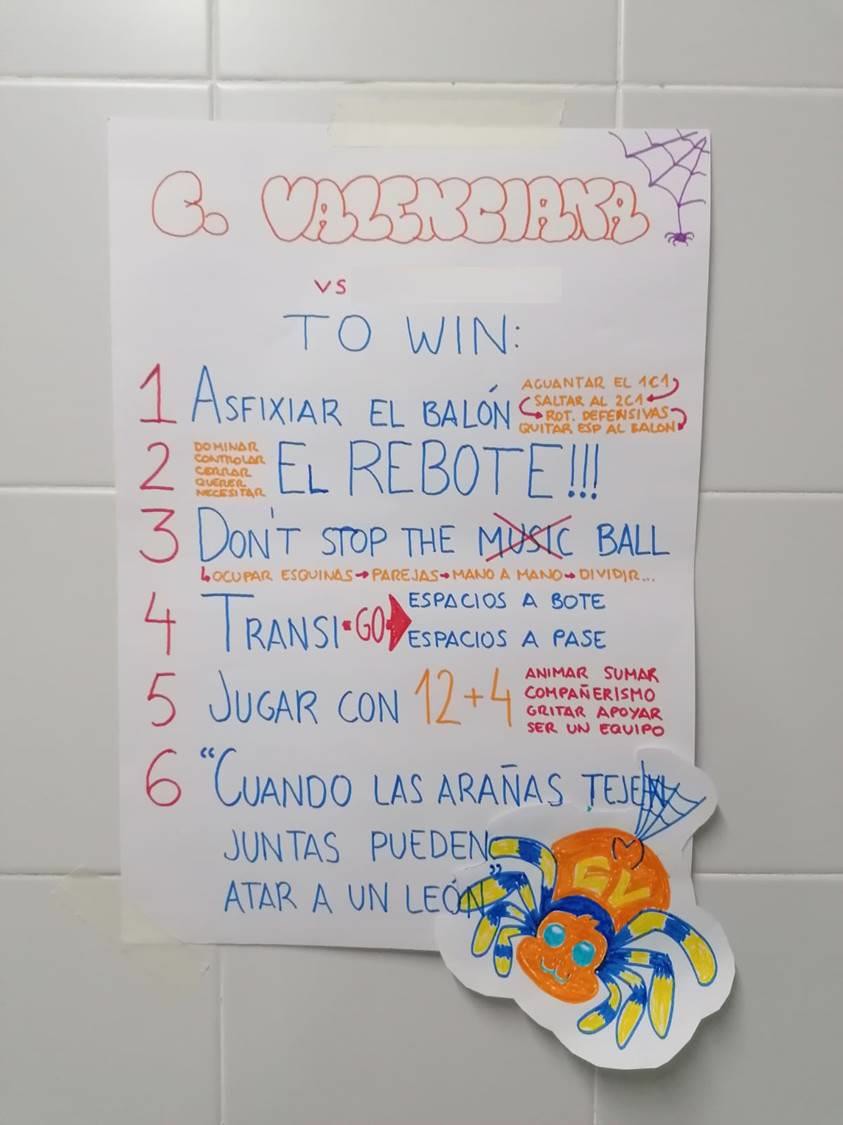 C. VALENCIANA
VS
TO WIN:
1 ASFIXIAR EL BALÓN
AGUANTAR EL 1C1
SALTAR AL 2C1
ROT. DEFENSIVAS
QUITAR ESP AL BALON
2 DOMINAR
CONTROLAR
CERRAR
QUERER
NECESITAR
EL REBOTE!!!
3 DON'T STOP THE MUSIC BALL
↳OCUPAR ESQUINAS→PAREJAS→MANO A MANO→DIVIDIR...
4 TRANSI·GO
ESPACIOS A BOTE
ESPACIOS A PASE
5 JUGAR CON 12+4
ANIMAR SUMAR
COMPAÑERISMO
GRITAR APOYAR
SER UN EQUIPO
6 "CUANDO LAS ARAÑAS TEJEN
JUNTAS PUEDEN
ATAR A UN LEÓN"
CV